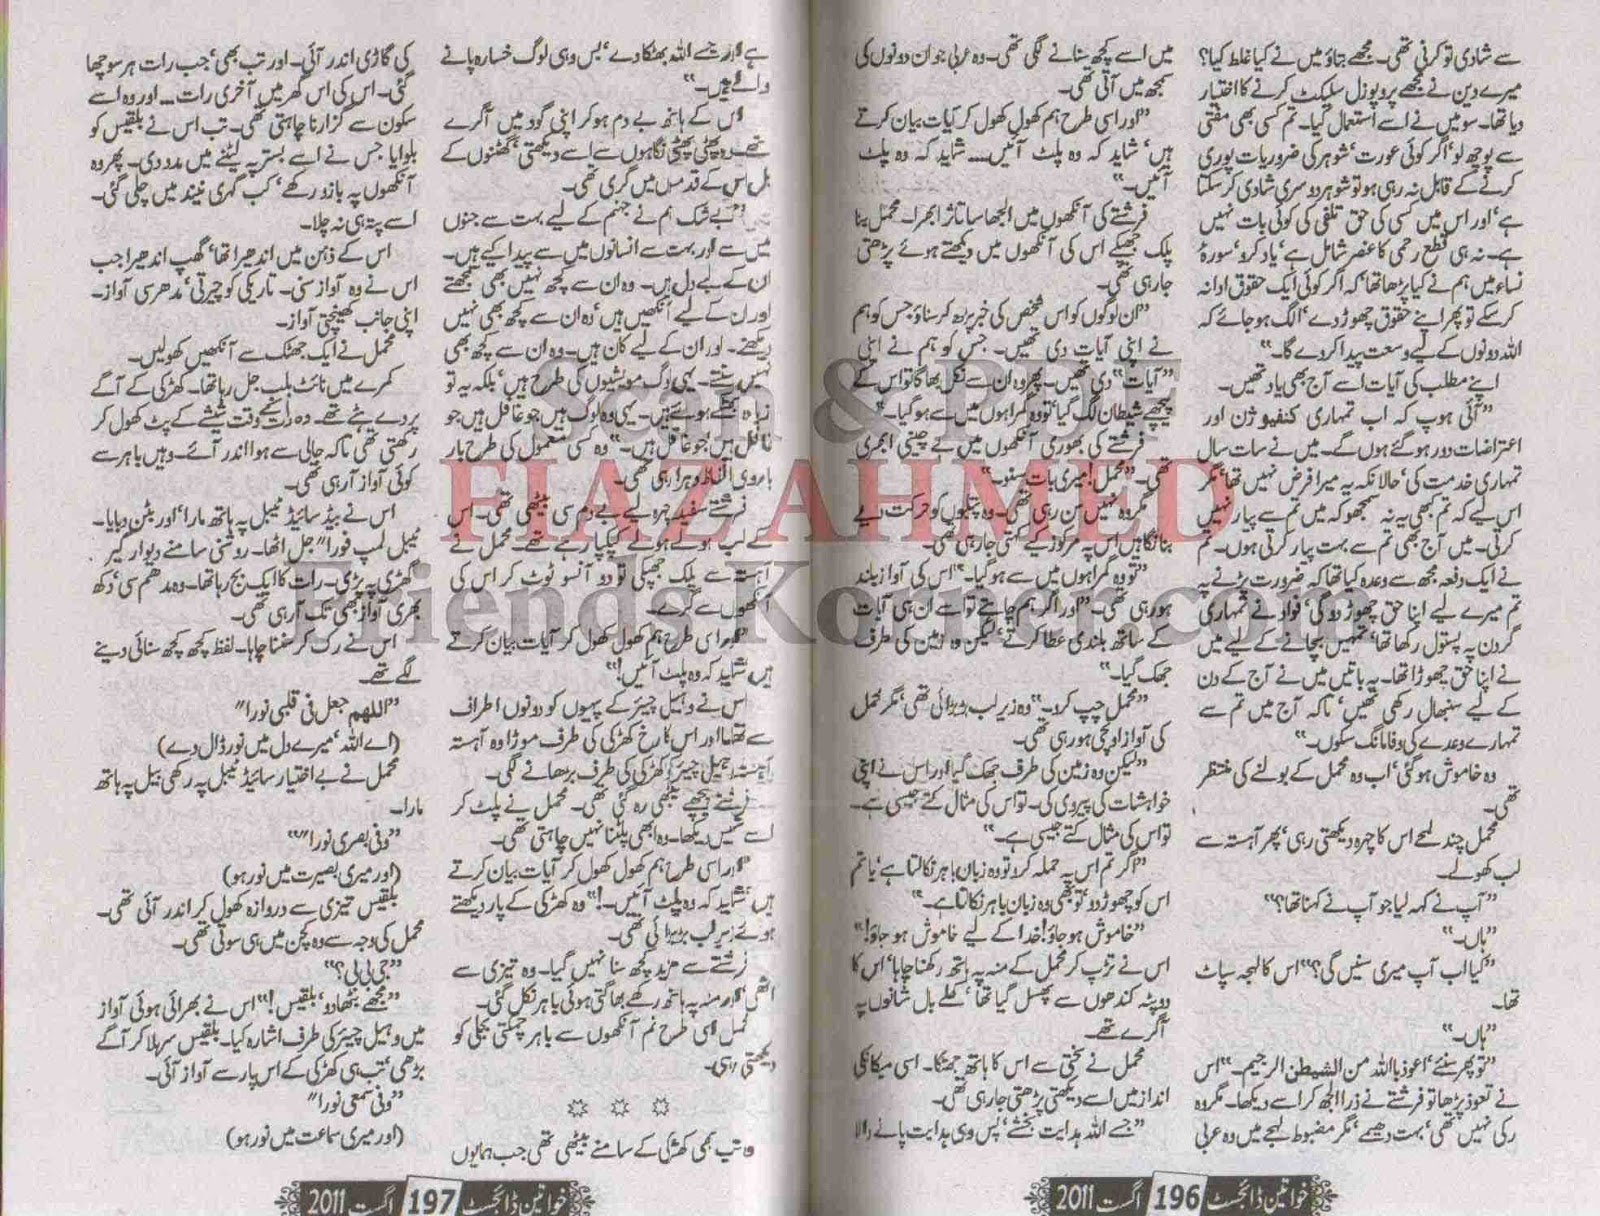 سے شادی تو کرنی تھی۔ مجھے بتاؤ میں نے کیا غلط کیا؟
میرے دین نے مجھے پروپوزل سلیکٹ کرنے کا اختیار
دیا تھا۔ سو میں نے اسے استعمال کیا۔ تم کسی بھی مفتی
سے پوچھ لو‘ اگر کوئی عورت‘ شوہر کی ضروریات پوری
کرنے کے قابل نہ رہی ہو تو شوہر دوسری شادی کر سکتا
ہے‘ اور اس میں کسی کی حق تلفی کی کوئی بات نہیں
ہے۔ نہ ہی قطع رحمی کا عنصر شامل ہے‘ یاد کرو‘ سورۃ
نساء میں ہم نے کیا پڑھا تھا‘ کہ اگر کوئی ایک حقوق ادا نہ
کر سکے تو پھر اپنے حقوق چھوڑ دے‘ الگ ہو جائے کہ
اللہ دونوں کے لیے وسعت پیدا کر دے گا۔“
اپنے مطلب کی آیات اسے آج بھی یاد تھیں۔
”آئی ہوپ کہ اب تمہاری کنفیوژن اور
اعتراضات دور ہو گئے ہوں گے۔ میں نے سات سال
تمہاری خدمت کی‘ حالانکہ یہ میرا فرض نہیں تھا‘ مگر
اس لیے کہ تم کبھی یہ نہ سمجھو کہ میں تم سے پیار نہیں
کرتی۔ میں آج بھی تم سے بہت پیار کرتی ہوں۔ تم
نے ایک دفعہ مجھ سے وعدہ کیا تھا کہ ضرورت پڑنے پہ
تم میرے لیے اپنا حق چھوڑ دو گی‘ فواد نے تمہاری
گردن پہ پستول رکھا تھا‘ تمہیں بچانے کے لیے میں
نے اپنا حق چھوڑا تھا۔ یہ باتیں میں نے آج کے دن
کے لیے سنبھال رکھی تھیں‘ تاکہ آج میں تم سے
تمہارے وعدے کی وفا مانگ سکوں۔“
وہ خاموش ہو گئی‘ اب وہ محمل کے بولنے کی منتظر
تھی۔
محمل چند لمحے اس کا چہرہ دیکھتی رہی‘ پھر آہستہ سے
لب کھولے۔
”آپ نے کہہ لیا جو آپ نے کہنا تھا؟“
”ہاں۔“
”کیا اب آپ میری سنیں گی؟“ اس کا لہجہ سپاٹ
تھا۔
”ہاں۔“
”تو پھر سنئے‘ اعوذ باللہ من الشیطن الرجیم۔“ اس
نے تعوذ پڑھا تو فرشتے نے ذرا الجھ کر اسے دیکھا۔ مگر وہ
رکی نہیں تھی‘ بہت دھیمے‘ مگر مضبوط لہجے میں وہ عربی
میں اسے کچھ سنانے لگی تھی۔ وہ عربی جو ان دونوں کی
سمجھ میں آتی تھی۔
”اور اسی طرح ہم کھول کھول کر آیات بیان کرتے
ہیں‘ شاید کہ وہ پلٹ آئیں.... شاید کہ وہ پلٹ
آئیں۔“
فرشتے کی آنکھوں میں الجھا سا تاثر ابھرا۔ محمل بنا
پلک جھپکے اس کی آنکھوں میں دیکھتے ہوئے پڑھتی
جا رہی تھی۔
”ان لوگوں کو اس شخص کی خبر پڑھ کر سناؤ جس کو ہم
نے اپنی آیات دی تھیں۔ جس کو ہم نے اپنی
”آیات“ دی تھیں۔ پھر وہ ان سے نکل بھاگا تو اس کے
پیچھے شیطان لگ گیا‘ تو وہ گمراہوں میں سے ہو گیا۔“
فرشتے کی بھوری آنکھوں میں بے چینی ابھری
تھی۔ ”محمل! میری بات سنو۔“
مگر وہ نہیں سن رہی تھی۔ وہ پتلیوں کو حرکت دیے
بنا نگاہیں اس پہ مرکوز کیے کہتی جا رہی تھی۔
”تو وہ گمراہوں میں سے ہو گیا۔“ اس کی آواز بلند
ہو رہی تھی۔ ”اور اگر ہم چاہتے تو اسے ان ہی آیات
کے ساتھ بلندی عطا کرتے‘ لیکن وہ زمین کی طرف
جھک گیا۔“
”محمل چپ کرو۔“ وہ زیر لب بڑبڑائی تھی‘ مگر محمل
کی آواز اونچی ہو رہی تھی۔
”لیکن وہ زمین کی طرف جھک گیا اور اس نے اپنی
خواہشات کی پیروی کی۔ تو اس کی مثال کتے جیسی ہے۔
تو اس کی مثال کتے جیسی ہے۔“
”اگر تم اس پہ حملہ کرو تو وہ زبان باہر نکالتا ہے‘ یا تم
اس کو چھوڑ دو‘ تو بھی وہ زبان باہر نکالتا ہے۔“
”خاموش ہو جاؤ! خدا کے لیے خاموش ہو جاؤ!“
اس نے تڑپ کر محمل کے منہ پہ ہاتھ رکھنا چاہا‘ اس کا
دوپٹہ کندھوں سے پھسل گیا تھا‘ کھلے بال شانوں پہ
آ گرے تھے۔
محمل نے سختی سے اس کا ہاتھ جھٹکا۔ اسی میکانکی
انداز میں اسے دیکھتی پڑھتی جا رہی تھی۔
”جسے اللہ ہدایت بخشے‘ پس وہی ہدایت پانے والا
خواتین ڈائجسٹ 196 اگست 2011
ہے اور جسے اللہ بھٹکا دے‘ بس وہی لوگ خسارہ پانے
والے ہیں۔“
اس کے ہاتھ بے دم ہو کر اپنی گود میں آ گرے
تھے۔ وہ پھٹی پھٹی نگاہوں سے اسے دیکھتی‘ گھٹنوں کے
بل اس کے قدموں میں گری تھی۔
”بے شک ہم نے جہنم کے لیے بہت سے جنوں
میں سے اور بہت سے انسانوں میں سے پیدا کیے ہیں۔
ان کے لیے دل ہیں۔ وہ ان سے کچھ نہیں بھی سمجھتے
اور ان کے لیے آنکھیں ہیں‘ وہ ان سے کچھ بھی نہیں
دیکھتے۔ اور ان کے لیے کان ہیں۔ وہ ان سے کچھ بھی
نہیں سنتے۔ یہی لوگ مویشیوں کی طرح ہیں‘ بلکہ یہ تو
زیادہ بھٹکے ہوئے ہیں۔ یہی وہ لوگ ہیں جو غافل ہیں جو
غافل ہیں جو غافل ہیں۔“ وہ کسی معمول کی طرح بار
بار وہی الفاظ دہرا رہی تھی۔
فرشتے سفید چہرہ لیے بے دم سی بیٹھی تھی۔ اس
کے لب ہولے ہولے کپکپا رہے تھے۔ محمل نے
آہستہ سے پلک جھپکی تو دو آنسو ٹوٹ کر اس کی
آنکھوں سے گرے۔
”اور اسی طرح ہم کھول کھول کر آیات بیان کرتے
ہیں شاید کہ وہ پلٹ آئیں!“
اس نے وہیل چیئر کے پہیوں کو دونوں اطراف
سے تھاما اور اس کا رخ کھڑکی کی طرف موڑا وہ آہستہ
آہستہ وہیل چیئر کو کھڑکی کی طرف بڑھانے لگی۔
فرشتے پیچھے بیٹھی رہ گئی تھی۔ محمل نے پلٹ کر
اسے نہیں دیکھا۔ وہ ابھی پلٹنا نہیں چاہتی تھی۔
”اور اسی طرح ہم کھول کھول کر آیات بیان کرتے
ہیں‘ شاید کہ وہ پلٹ آئیں۔!“ وہ کھڑکی کے پار دیکھتے
ہوئے زیر لب بڑبڑائی تھی۔
فرشتے سے مزید کچھ سنا نہیں گیا۔ وہ تیزی سے
اٹھی‘ اور منہ پہ ہاتھ رکھے بھاگتی ہوئی باہر نکل گئی۔
محمل اسی طرح نم آنکھوں سے باہر چمکتی بجلی کو
دیکھتی رہی۔
وہ تب بھی کھڑکی کے سامنے بیٹھی تھی جب ہمایوں
کی گاڑی اندر آئی۔ اور تب بھی‘ جب رات ہر سو چھا
گئی۔ اس کی اس گھر میں آخری رات... اور وہ اسے
سکون سے گزارنا چاہتی تھی۔ تب اس نے بلقیس کو
بلوایا جس نے اسے بستر پہ لیٹنے میں مدد دی۔ پھر وہ
آنکھوں پہ بازو رکھے‘ کب گہری نیند میں چلی گئی۔
اسے پتہ ہی نہ چلا۔
اس کے ذہن میں اندھیرا تھا‘ گھپ اندھیرا جب
اس نے وہ آواز سنی۔ تاریکی کو چیرتی‘ مدھر سی آواز۔
اپنی جانب کھینچتی آواز۔
محمل نے ایک جھٹکے سے آنکھیں کھولیں۔
کمرے میں نائٹ بلب جل رہا تھا۔ کھڑکی کے آگے
پردے ہٹے تھے۔ وہ رات کے وقت شیشے کے پٹ کھول کر
رکھتی تھی تاکہ جالی سے ہوا اندر آئے۔ وہیں باہر سے
کوئی آواز آ رہی تھی۔
اس نے بیڈ سائیڈ ٹیبل پہ ہاتھ مارا‘ اور بٹن دبایا۔
ٹیبل لیمپ فوراً جل اٹھا۔ روشنی سامنے دیوار گیر
گھڑی پہ پڑی۔ رات کا ایک بج رہا تھا۔ وہ مدھم سی‘ دکھ
بھری آواز ابھی تک آ رہی تھی۔
اس نے رک کر سننا چاہا۔ لفظ کچھ کچھ سنائی دینے
لگے تھے۔
”اللھم جعل فی قلبی نورا“
(اے اللہ‘ میرے دل میں نور ڈال دے)
محمل نے بے اختیار سائیڈ ٹیبل پہ رکھی بیل پہ ہاتھ
مارا۔
”وفی بصری نورا“
(اور میری بصیرت میں نور ہو)
بلقیس تیزی سے دروازہ کھول کر اندر آئی تھی۔
محمل کی وجہ سے وہ کچن میں ہی سوتی تھی۔
”جی بی بی؟“
”مجھے بٹھا دو‘ بلقیس!“ اس نے بھرائی ہوئی آواز
میں وہیل چیئر کی طرف اشارہ کیا۔ بلقیس سر ہلا کر آگے
بڑھی‘ تب ہی کھڑکی کے اس پار سے آواز آئی۔
”وفی سمعی نورا“
(اور میری سماعت میں نور ہو)
خواتین ڈائجسٹ 197 اگست 2011
Scan & PDF
FIAZ AHMED
FriendsKorner.com